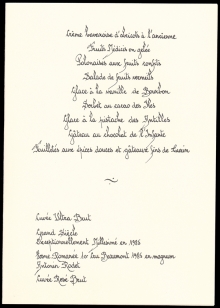 Crème Beneraise d'abricots à l'ancienne
Fruits Médicis en gelée
Polonaises aux fruits confits
Salade de fruits vermeils
Glace à la vanille de Bourbon
Sorbet au cacao des Iles
Glace à la pistache des Antilles
Gâteau au chocolat de l'Infante
Feuilletés aux épices douces et gâteaux fins de
Cuvée Ultra Brut
Grand Siècle
Exceptionnellement Millésimé en 1985
Vosne Romanée les Beaumont 1985 en magnum
Antonin Rodet
Cuvée Rosé Brut